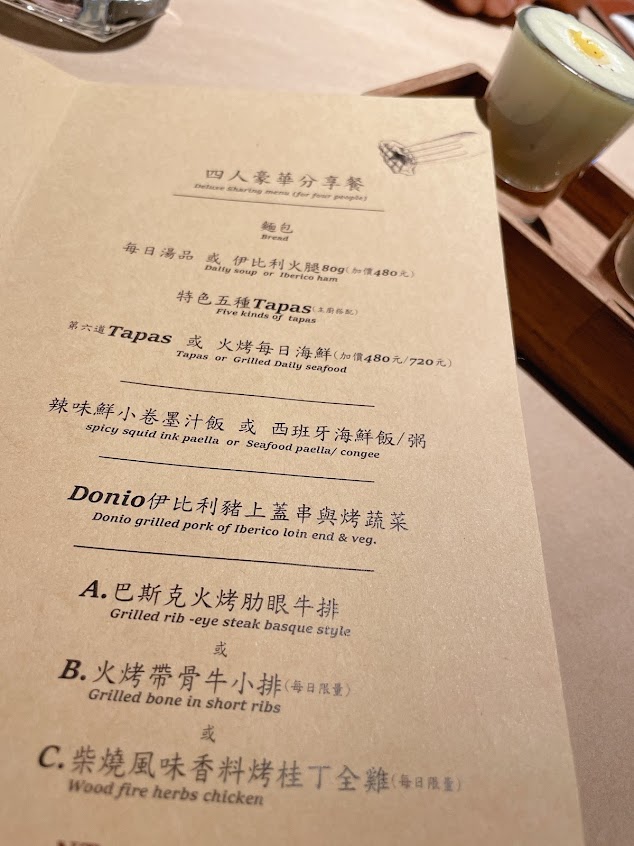 四人豪華分享餐
Deluxe Sharing menu (for four people)
麵包
Bread
每日湯品 或 伊比利火腿80g(加價480元)
Daily soup or Iberico ham
特色五種Tapas(主廚搭配)
Five kinds of tapas
第六道Tapas 或 火烤每日海鮮(加價480元/720元)
Tapas or Grilled Daily seafood
辣味鮮小卷墨汁飯 或 西班牙海鮮飯/粥
spicy squid ink paella or Seafood paella/ congee
Donio伊比利豬上蓋串與烤蔬菜
Donio grilled pork of Iberico loin end & veg.
A.巴斯克火烤肋眼牛排
Grilled rib -eye steak basque style
或
B.火烤帶骨牛小排(每日限量)
Grilled bone in short ribs
或
C.柴燒風味香料烤桂丁全雞(每日限量)
Wood fire herbs chicken